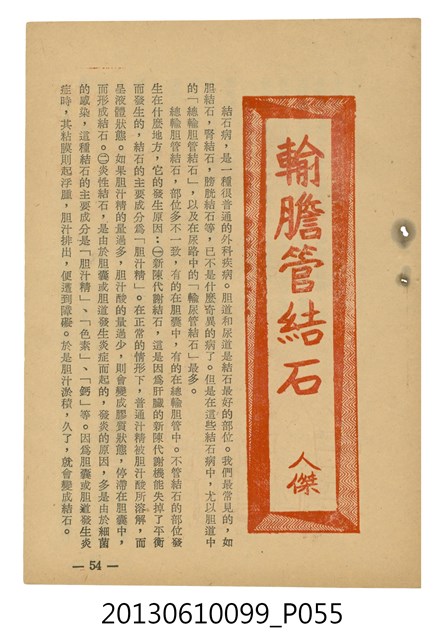 輸膽管結石
人傑
結石病，是一種很普通的外科疾病。胆道和尿道是結石最好的部位。我們最常見的，如
胆結石，腎結石，膀胱結石等，已不是什麽奇異的病了。但是在這些結石病中，尤以胆道中
的「總輸胆管結石」，以及在尿路中的「輸尿管結石」最多。
總輸胆管結石，部位多不一致，有的在胆囊中，有的在總輸胆管中。不管結石的部位發
生在什麽地方，它的發生原因：㊀新陳代謝結石，這是因爲肝臟的新陳代謝機能失掉了平衡
而發生的，結石的主要成分爲「胆汁精」。在正常的情形下，普通汁精被胆汁酸所溶解，而
呈液體狀態。如果胆汁精的量過多，胆汁酸的量過少，則會變成膠質狀態，停滯在胆囊中，
而形成結石。㊁炎性結石，是由於胆囊或胆道發生炎症而起的，發炎的原因，多是由於細菌
的感染，這種結石的主要成分是「胆汁精」、「色素」、「鈣」等。因爲胆囊或胆道發生炎
症時，其粘膜則起浮腫，胆汁排出，便遭到障礙。於是胆汁淤積，久了，就會變成結石。
— 54 —
20130610099_P055